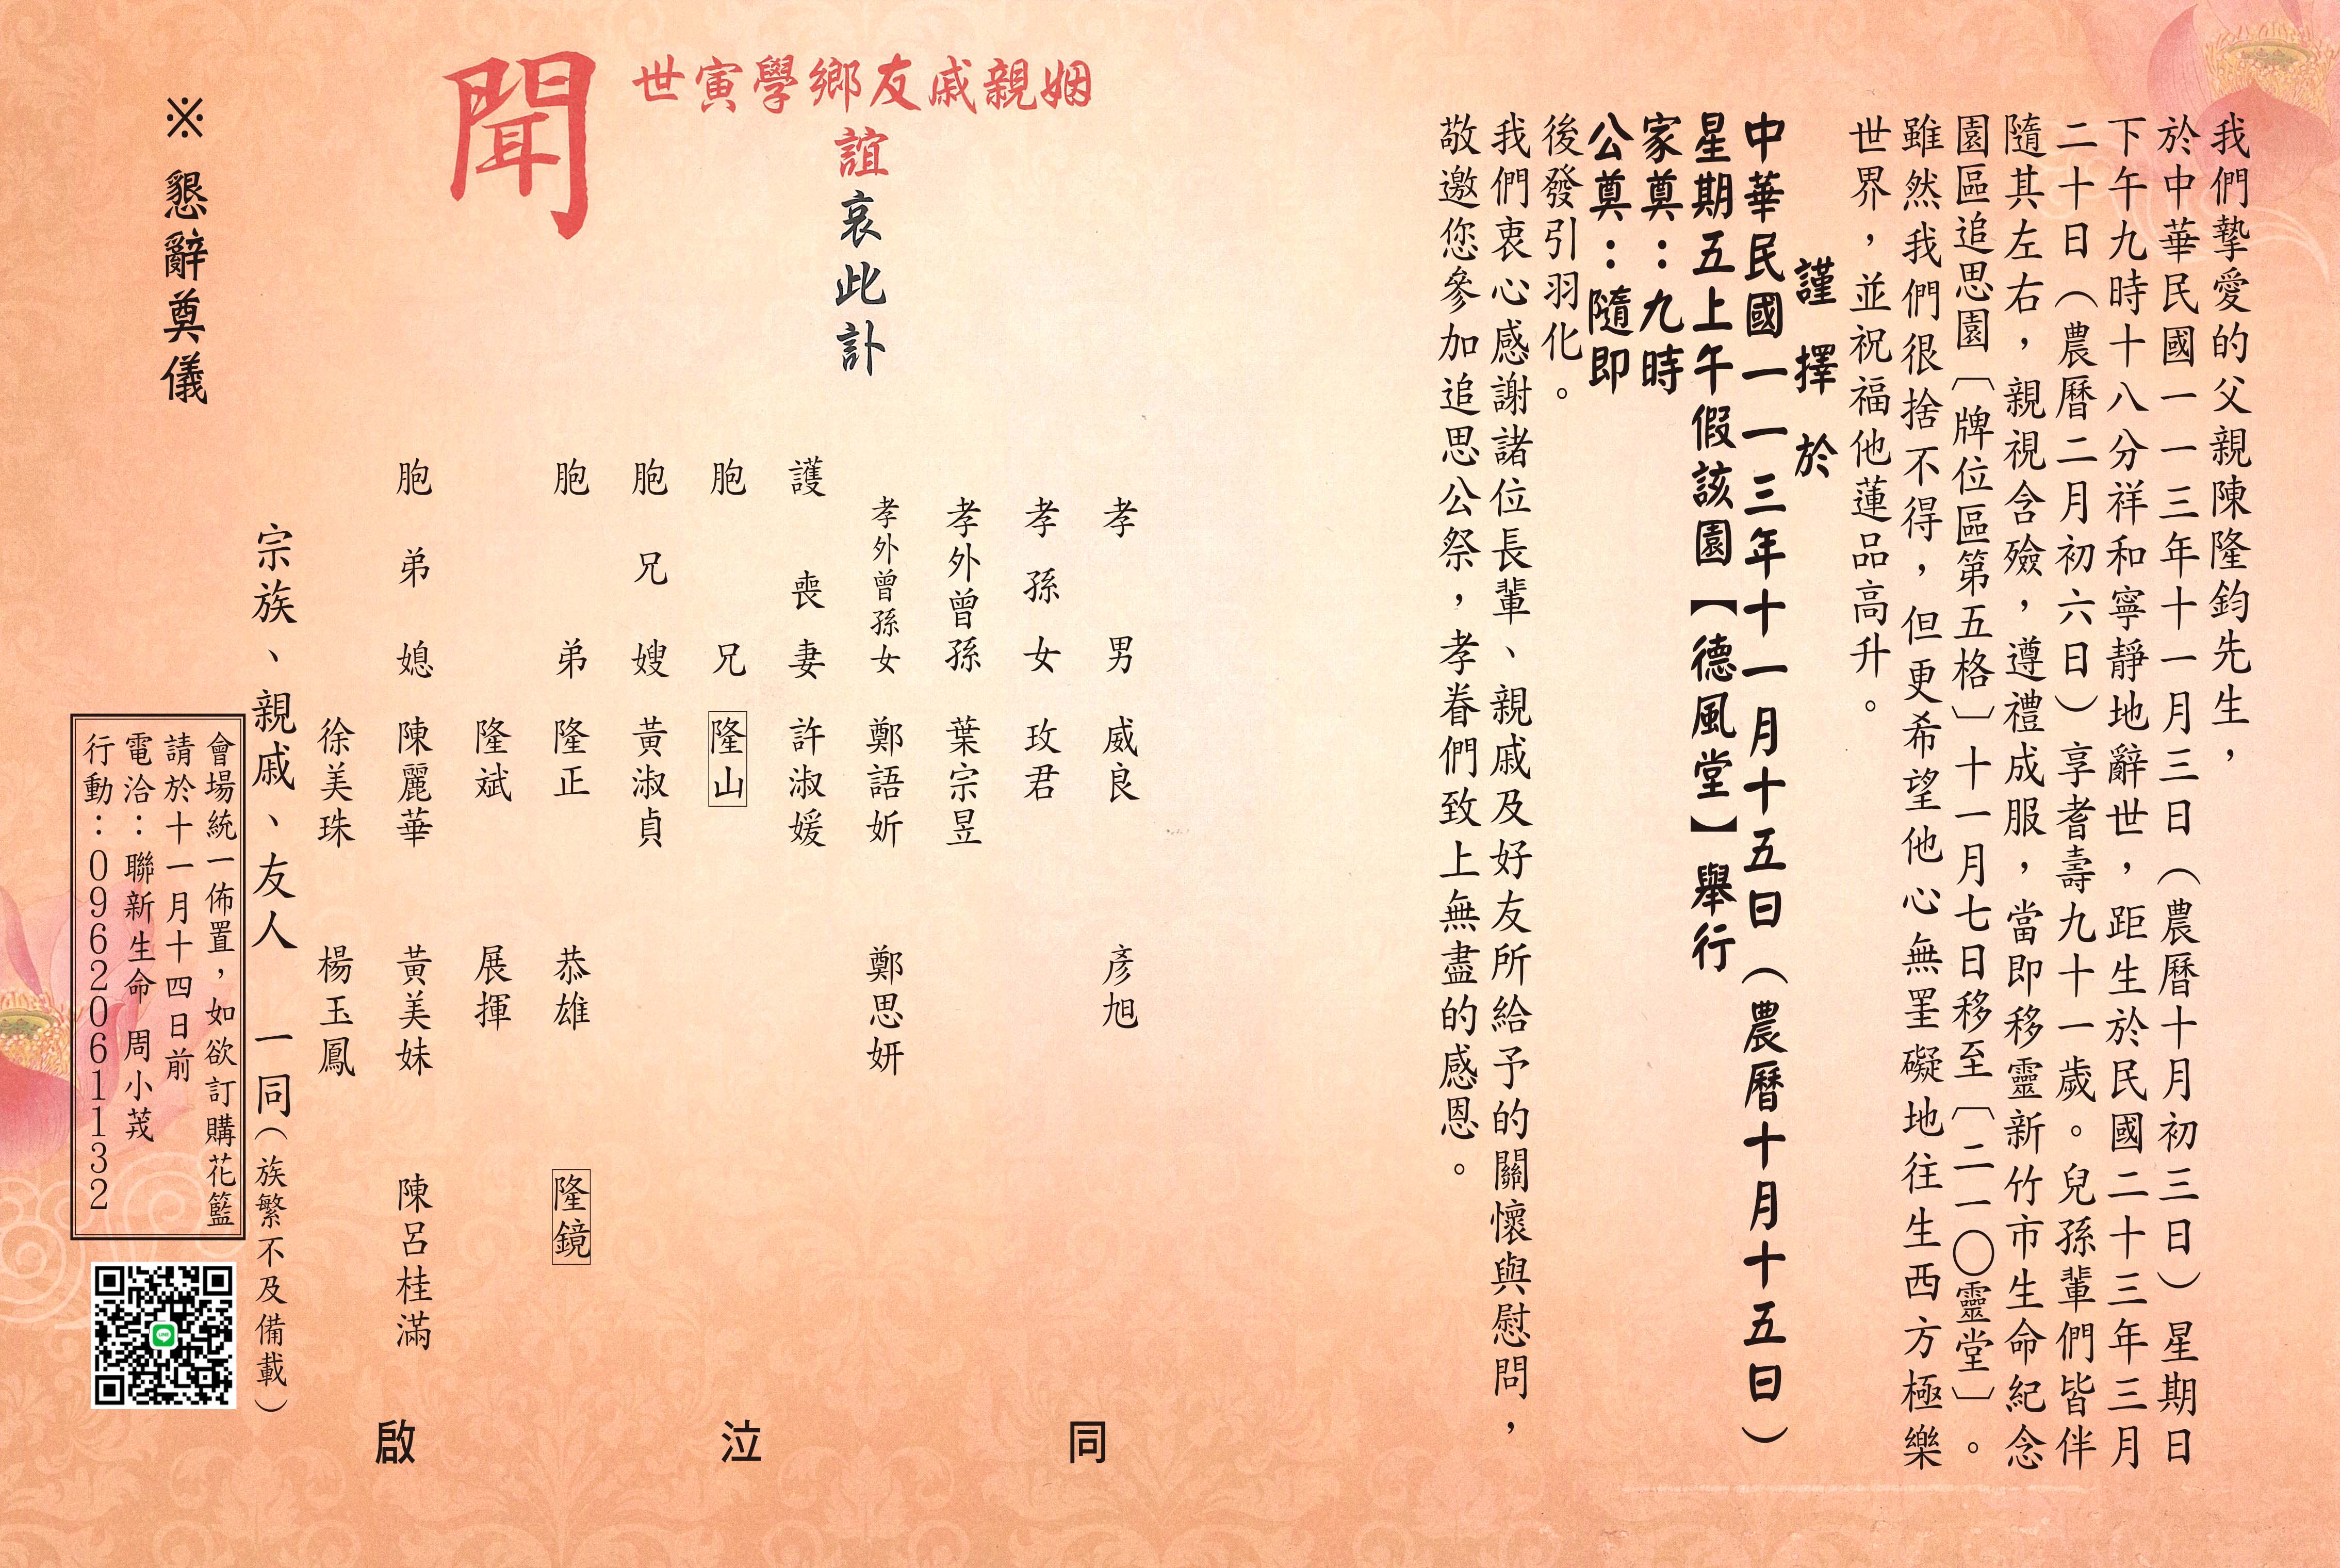 我們摯愛的父親陳隆鈞先生，
於中華民國一一三年十一月三日（農曆十月初三日）星期日
下午九時十八分祥和寧靜地辭世，距生於民國二十三年三月
二十日（農曆二月初六日）享耆壽九十一歲。兒孫輩們皆伴
隨其左右，親視含殮，遵禮成服，當即移靈新竹市生命紀念
園區追思園〔牌位區第五格〕十一月七日移至〔二一〇靈堂〕。
雖然我們很捨不得，但更希望他心無罣礙地往生西方極樂
世界，並祝福他蓮品高升。
謹擇於
中華民國一一三年十一月十五日（農曆十月十五日）
星期五上午假該園【德風堂】舉行
家奠：九時
公奠：隨即
後發引羽化。
我們衷心感謝諸位長輩、親戚及好友所給予的關懷與慰問，
敬邀您參加追思公祭，孝眷們致上無盡的感恩。
姻親戚友鄉學寅世
誼哀此訃
聞
孝男 威良 彥旭
孝孫女 玫君
孝外曾孫 葉宗昱
孝外曾孫女 鄭語妡 鄭思妍
護喪妻 許淑媛
胞兄 隆山
胞兄嫂 黃淑貞
胞弟 隆正 恭雄 隆鏡
隆斌 展揮
胞弟媳 陳麗華 黃美妹 陳呂桂滿
徐美珠 楊玉鳳
同泣啟
宗族、親戚、友人 一同（族繁不及備載）
※懇辭奠儀
會場統一佈置，如欲訂購花籃
請於十一月十四日前
電洽：聯新生命 周小茙
行動：0962061132